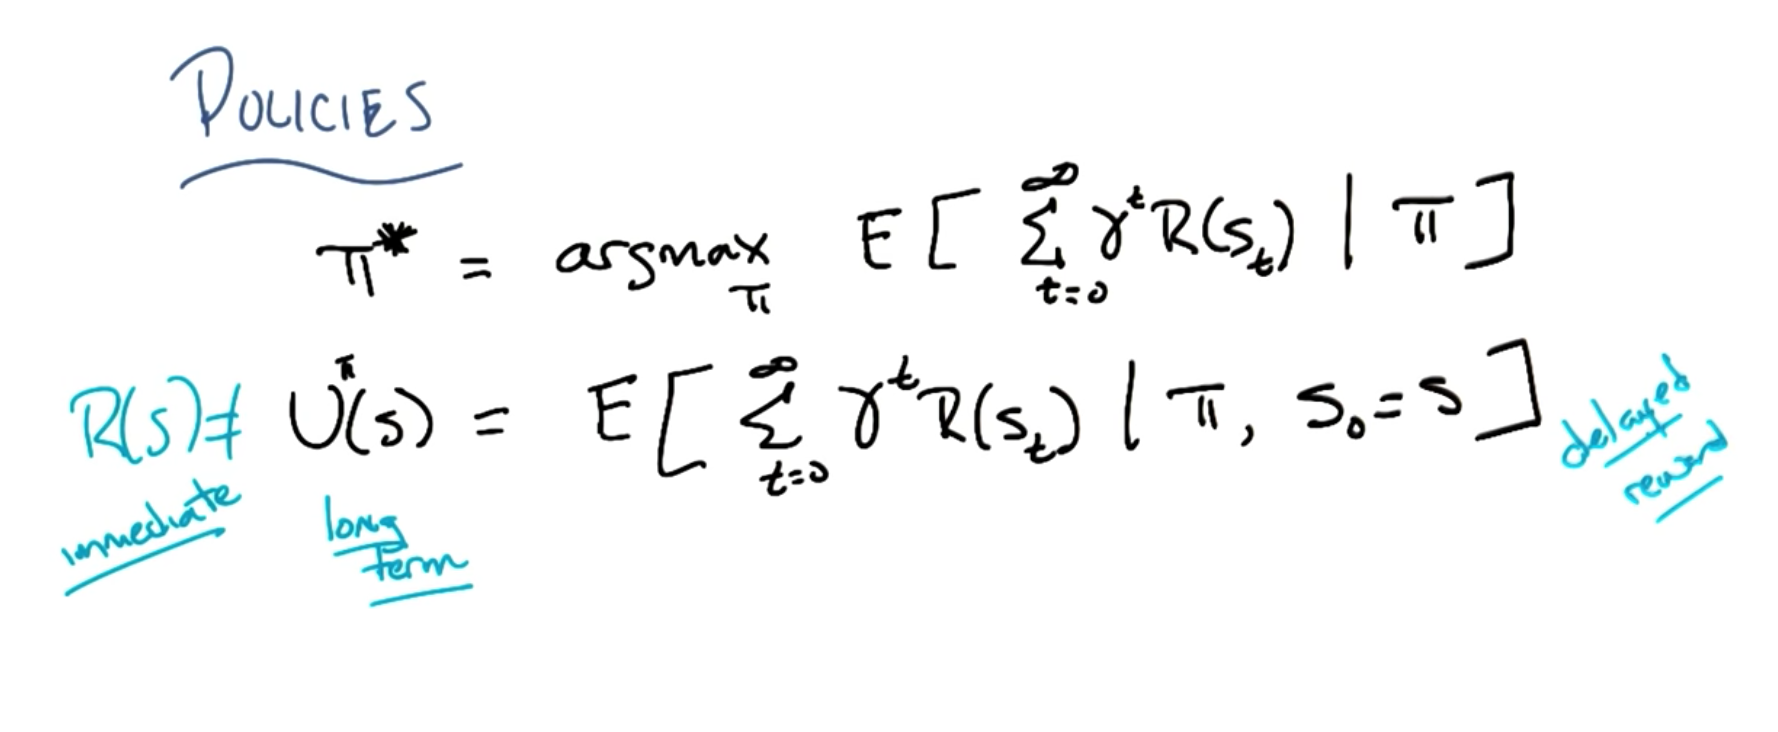 POLICIES
π* = argmax_π E[ ∑_{t=0}^{∞} γ^t R(s_t) | π ]
R(s) ≠ U^π(s) = E[ ∑_{t=0}^{∞} γ^t R(s_t) | π, s_0 = s ]
immediate
long
term
delayed
reward